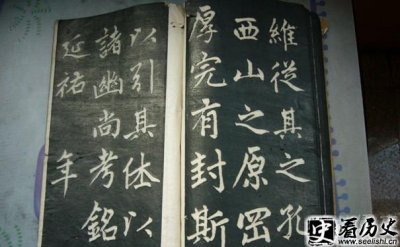 維從其之孔
西山之原岡
厚完有封斯
以引其休以
諸幽尚考銘
延祐 年
看历史
www.seelishi.cn